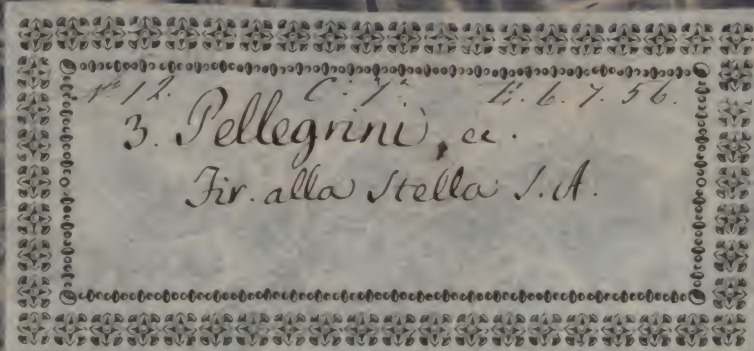 nº 12. C. 7. E. 6. 7. 56.
3. Pellegrini, &c.
Fir. alla Stella S. A.